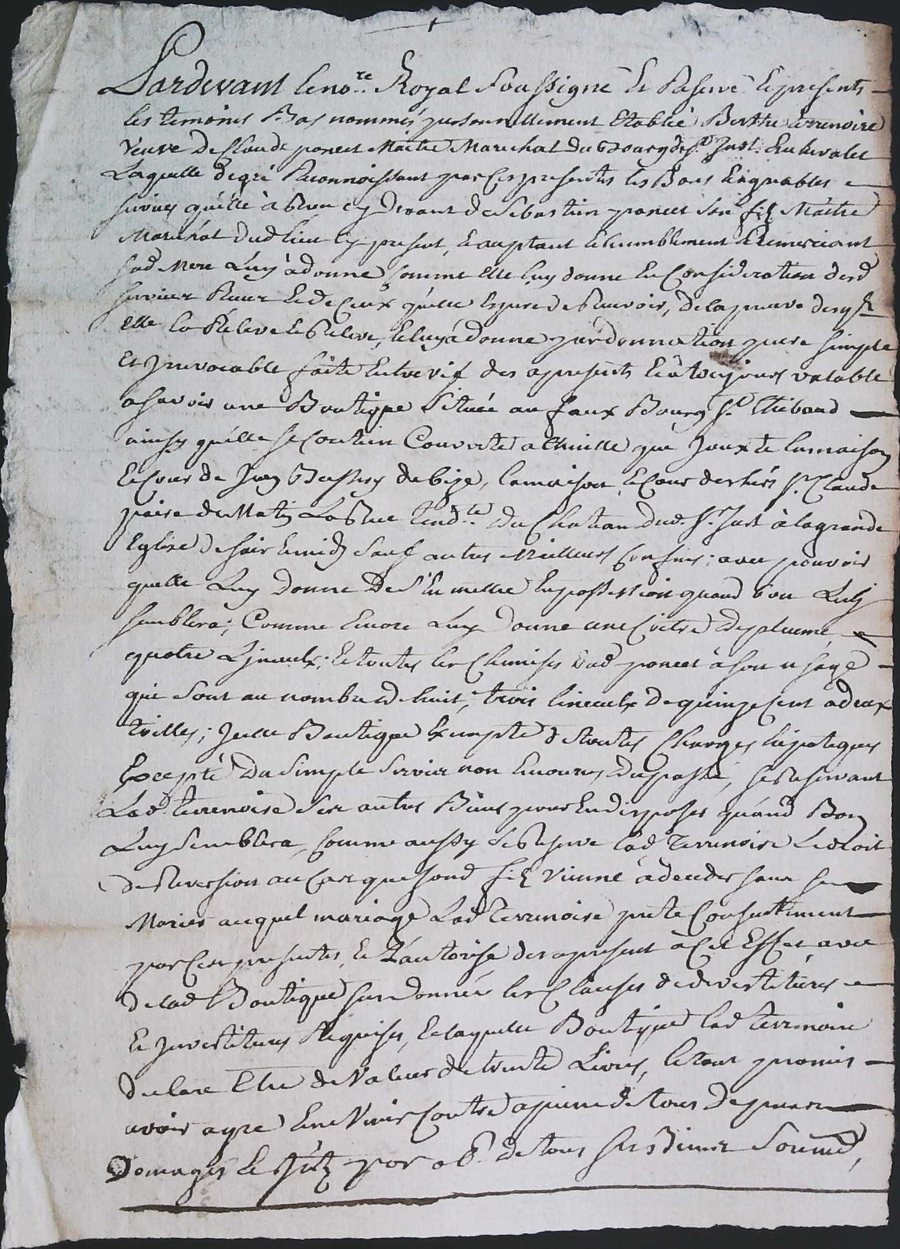 Pardevant le no.re Royal Soussigné et Reservé et presents
les temoins Bas nommés personnellement Etablie Berthe terrenoire
veuve de Claude poncet Maitre Marechal du bourg de St Just En chevalet
Laquelle de gré Reconnoissant par ces presentes les Bons Eagreables
services quelle à Reçu cy devant de Sebastien poncet son fil Maitre
Marechal dud lieu cy present, Acceptant et humblement Remerciant
sad Mere Luy à donné comme elle luy donne En Consideration desd
services Reçus et de Ceux quelle espere de Recevoir, de la preuve desq.ls
elle la Releve et Releve, et luy à donné par donnation pure simple
Et Jrrevocable faite Entre vif des apresents Et à toujours valable
asavoir une Boutique Située au faux Bourg St Thibaud
ainsy quelle se Contien Couverte à thuille que Jouxte la maison
Et Cour de Bessey de bize, la maison et Cour des St Claude
de Matin La Rue tend.te du Chateau dud. St Just à la grande
Eglise de soir Emidy Sauf autres Meilleurs Confins; avec pouvoir
quelle Luy donne De S'En mettre En possession quand bon Luy
semblera; Comme Encore Luy Donne une Coitre de plume
quatre Linceulx; Et toutes les Chemises dud poncet à son usage
qui sont au nombre de huit, trois linceulx de quinze Cent a deux
toilles; Jcelle Boutique Exempte de toutes Charges hipoteques
Excepté Du Simple Servis non Encourus Dupassé, se Reservant
Lad. terrenoire Ses autres Biens pour En disposer quand Bon
Luy Semblera, Comme aussy se Reserve lad Terrenoire Le droit
de Reversion au Cas que sond fil vienne à deceder sans se
Marier auquel mariage Lad Terrenoire prete Consentement
par Ces presentes, et L'autorise des apresent à Cet Effet avec
de lad Boutique sus donnée les Clauses de devestitures
Et Jnvestitures Requises, Et laquelle Boutique lad Terrenoire
declare Etre de valeur de trente Livres, le tout promis
avoir agre Et ne venir Contre apeine de tous Depens
Domages Et par ob. de tous ses Biens Soumis,